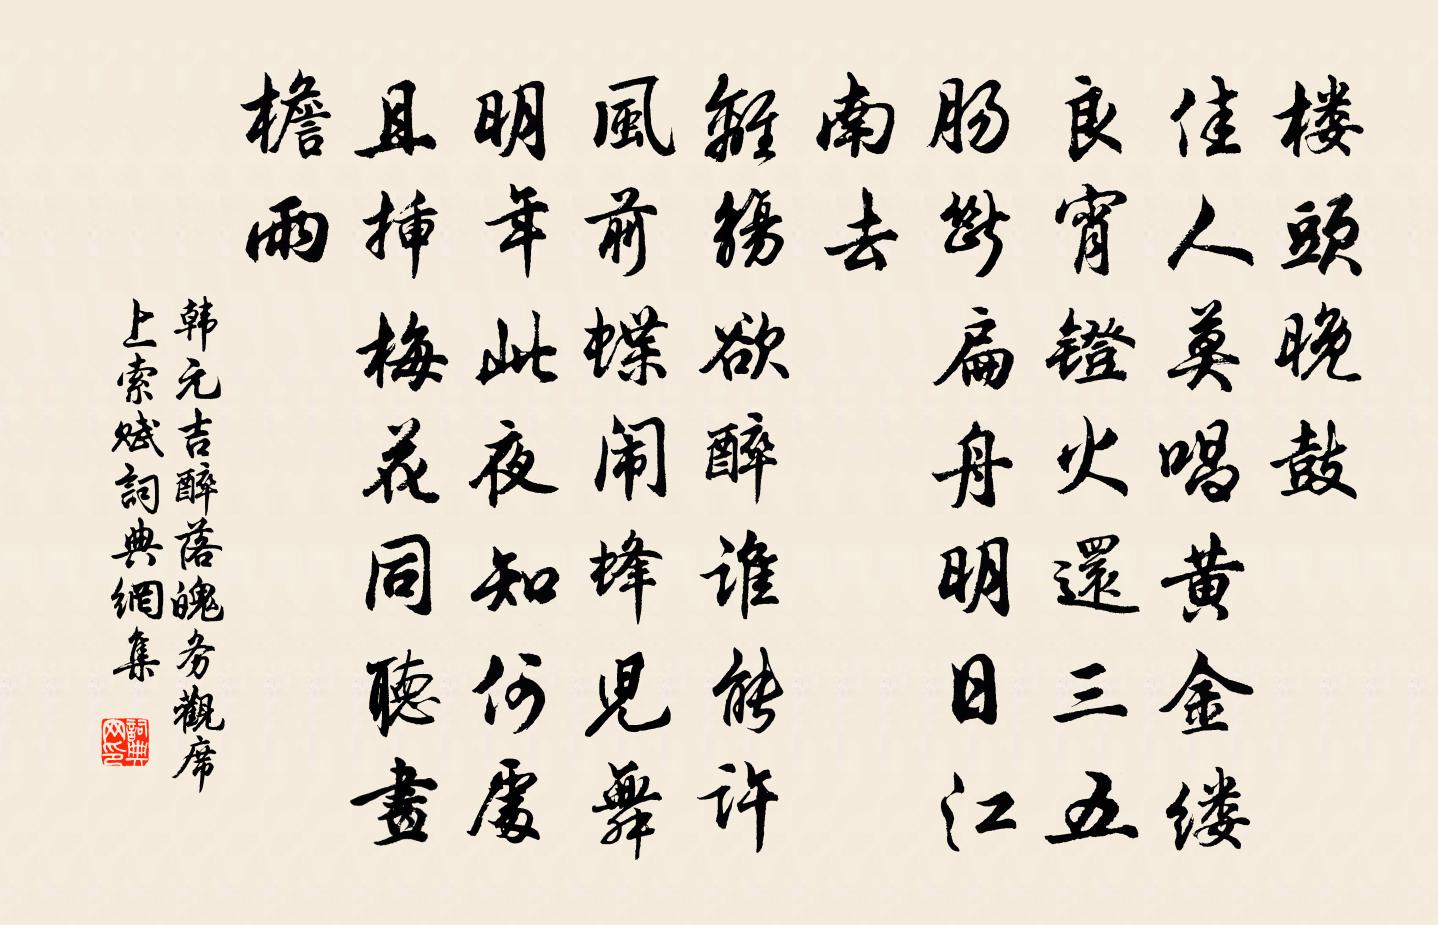 楼頭晚鼓
佳人莫唱黄金缕
良宵镫火還三五
肠斷扁舟明日江
南去
離觴欲醉谁能許
風前蝶闹蜂児舞
明年此夜知何處
且挿梅花同聽畫
檐雨
韩元吉醉落魄务觀席
上索赋詞典網集
詞典
网印